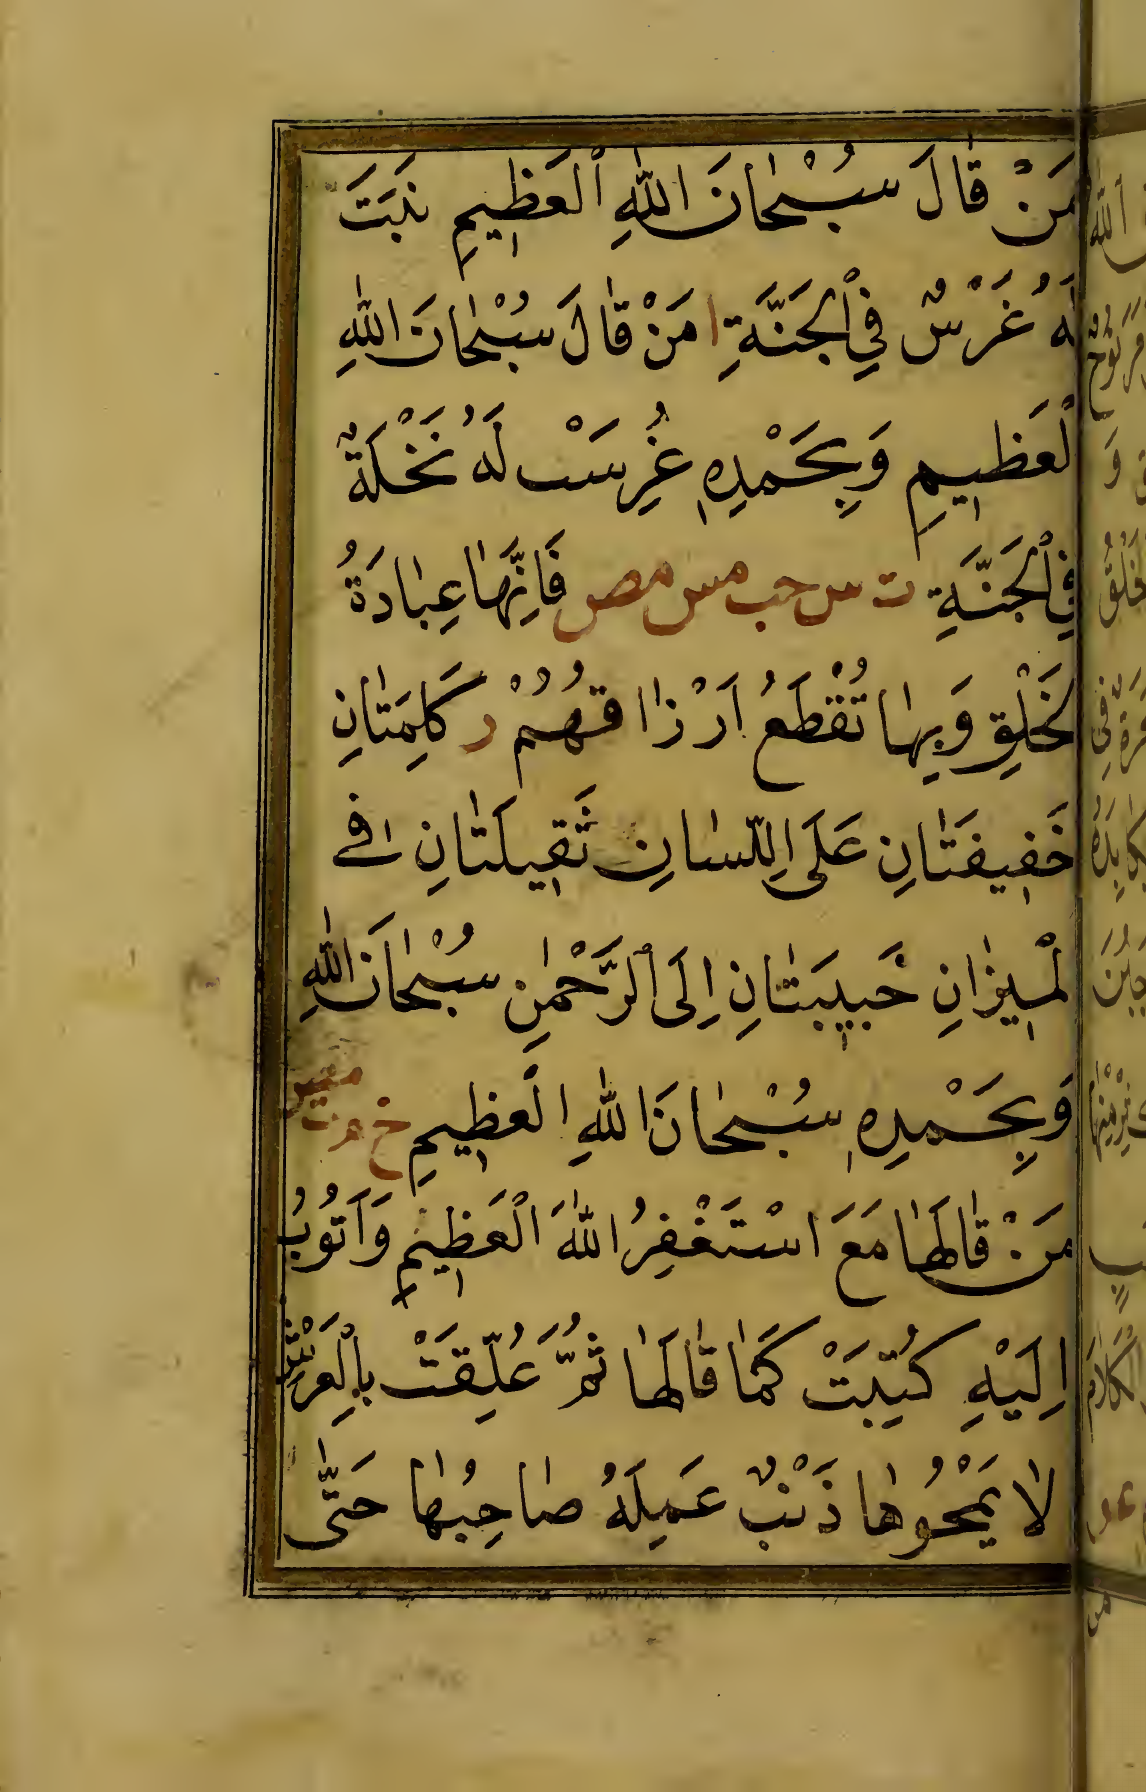 مَنْ قَالَ سُبْحَانَ اللّٰهِ الْعَظِيمِ نَبَتَ
لَهُ غَرْسٌ فِي الْجَنَّةِ ا مَنْ قَالَ سُبْحَانَ اللّٰهِ
لْعَظِيمِ وَبِحَمْدِهِ غُرِسَتْ لَهُ نَخْلَةٌ
فِي الْجَنَّةِ ت س حب مس مص فَاِنَّهَا عِبَادَةُ
لْخَلْقِ وَبِهَا تُقْطَعُ اَرْزَاقُهُمْ ر كَلِمَتَانِ
خَفِيفَتَانِ عَلَى اللِّسَانِ ثَقِيلَتَانِ فِي
لْمِيزَانِ حَبِيبَتَانِ اِلَى الرَّحْمٰنِ سُبْحَانَ اللّٰهِ
وَبِحَمْدِهِ سُبْحَانَ اللّٰهِ الْعَظِيمِ خ م ت
مَنْ قَالَهَا مَعَ اسْتَغْفِرُ اللّٰهَ الْعَظِيمَ وَاَتُوبُ
اِلَيْهِ كُتِبَتْ كَمَا قَالَهَا ثُمَّ عُلِّقَتْ بِالْعَرْشِ
لَا يَمْحُوهَا ذَنْبٌ عَمِلَهُ صَاحِبُهَا حَتّٰى